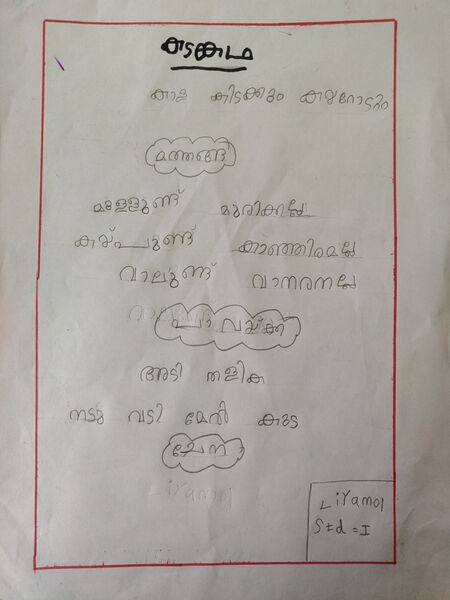 കടങ്കഥ
കാള കിടക്കും കയറോടും
മത്തങ്ങ്
മുള്ളുണ്ട് മുരിക്കല്ല
കയ്പുണ്ട് കാഞ്ഞിരമല്ല
വാലുണ്ട് വാനരനല്ല
പാ വയ്ക്ക
അടി തളിക
നടു വടി മേൽ കുട
ചേന
Liyamol
Std = I